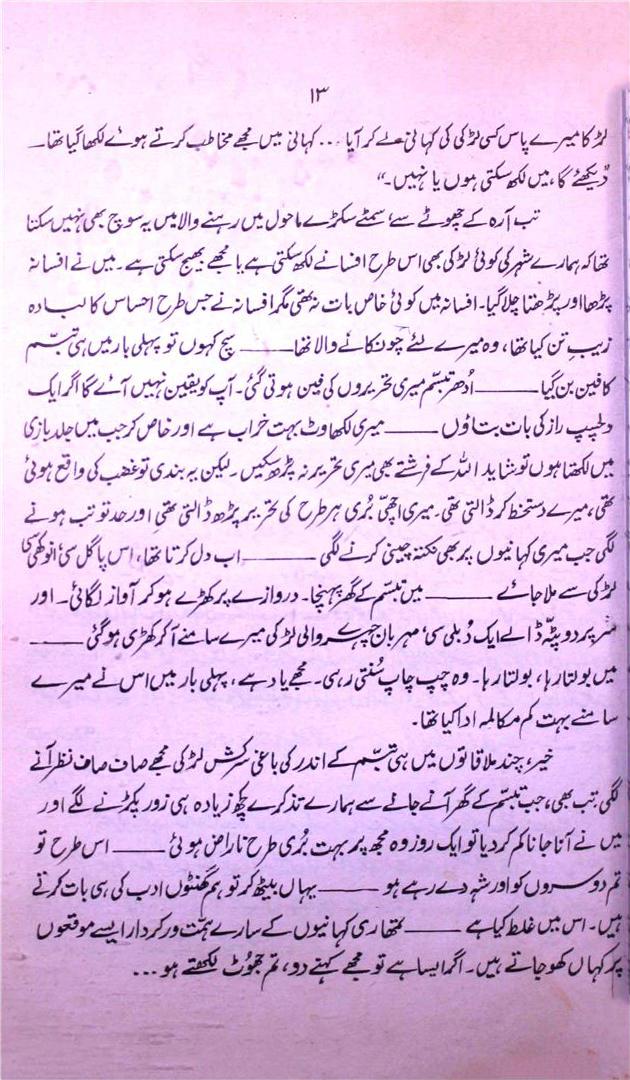 ۱۳
لڑکا میرے پاس کسی لڑکی کی کہانی لے کر آیا ... کہانی میں مجھے مخاطب کرتے ہوئے لکھا گیا تھا۔
"دیکھئے گا، میں لکھ سکتی ہوں یا نہیں۔"
تب آرہ کے چھوٹے سے، سمٹے سکڑے ماحول میں رہنے والا میں یہ سوچ بھی نہیں سکتا
تھا کہ ہمارے شہر کی کوئی لڑکی بھی اس طرح افسانے لکھ سکتی ہے یا مجھے بھیج سکتی ہے۔ میں نے افسانہ
پڑھا اور پڑھتا چلا گیا۔ افسانہ میں کوئی خاص بات نہ تھی مگر افسانہ نے جس طرح احساس کا لبادہ
زیب تن کیا تھا، وہ میرے لئے چونکانے والا تھا ——— سچ کہوں تو پہلی بار میں ہی تبسّم
کا فین بن گیا ——— اُدھر تبسّم میری تحریروں کی فین ہوتی گئی۔ آپ کو یقین نہیں آئے گا اگر ایک
دلچسپ راز کی بات بتاؤں ——— میری لکھاوٹ بہت خراب ہے اور خاص کر جب میں جلد بازی
میں لکھتا ہوں تو شاید اللہ کے فرشتے بھی میری تحریر نہ پڑھ سکیں۔ لیکن یہ بندی تو غضب کی واقع ہوئی
تھی، میرے دستخط کر ڈالتی تھی۔ میری اچھی بُری ہر طرح کی تحریر پڑھ ڈالتی تھی اور حد تو تب ہونے
لگی جب میری کہانیوں پر بھی نکتہ چینی کرنے لگی ——— اب دل کرتا تھا، اس پاگل سی انوکھی سی
لڑکی سے ملا جائے ——— میں تبسّم کے گھر پہنچا۔ دروازے پر کھڑے ہو کر آواز لگائی۔ اور
سر پر دوپٹّہ ڈالے ایک دُبلی سی، مہربان چہرے والی لڑکی میرے سامنے آ کر کھڑی ہو گئی ———
میں بولتا رہا، بولتا رہا۔ وہ چپ چاپ سُنتی رہی۔ مجھے یاد ہے، پہلی بار میں اس نے میرے
سامنے بہت کم مکالمہ ادا کیا تھا۔
خیر، چند ملاقاتوں میں ہی تبسّم کے اندر کی باغی سرکش لڑکی مجھے صاف صاف نظر آنے
لگی تب بھی، جب تبسّم کے گھر آنے جانے سے ہمارے تذکرے کچھ زیادہ ہی زور پکڑنے لگے اور
میں نے آنا جانا کم کر دیا تو ایک روز وہ مجھ پر بہت بُری طرح ناراض ہوئی ——— اس طرح تو
تم دوسروں کو اور شہ دے رہے ہو ——— یہاں بیٹھ کر تو ہم گھنٹوں ادب کی ہی بات کرتے
ہیں۔ اس میں غلط کیا ہے ——— تمہاری کہانیوں کے سارے ہمّت ور کردار ایسے موقعوں
پر کہاں کھو جاتے ہیں۔ اگر ایسا ہے تو مجھے کہنے دو، تم جھوٹ لکھتے ہو...